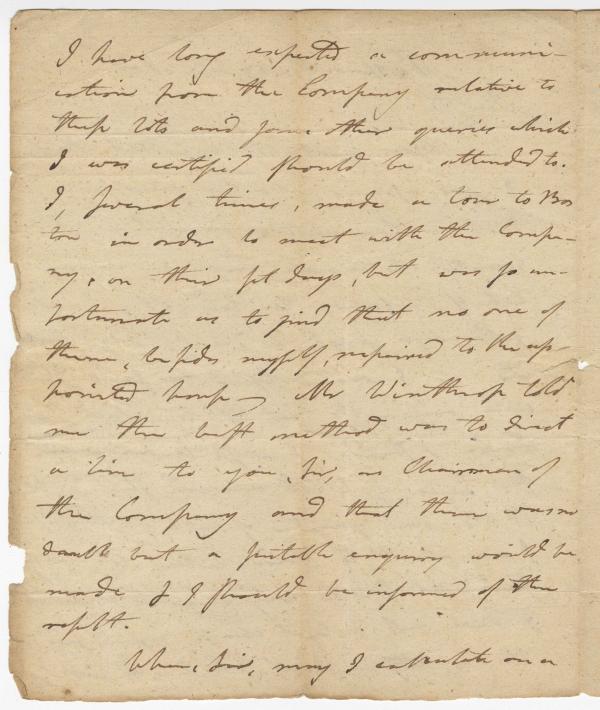 I have long expected a communi-
cation from the Company relative to
these lots and some other queries which
I was certified should be attended to.
I, several times, made a tour to Bos
ton in order to meet with the Compa-
ny, on their set days, but was so un-
fortunate as to find that no one of
them, besides myself, repaired to the ap-
pointed house — Mr Winthrop told
me the best method was to direct
a line to you, Sir, as Chairman of
the Company and that there was no
doubt but a suitable enquiry would be
made & I should be informed of the
result.
When, Sir, may I calculate on a